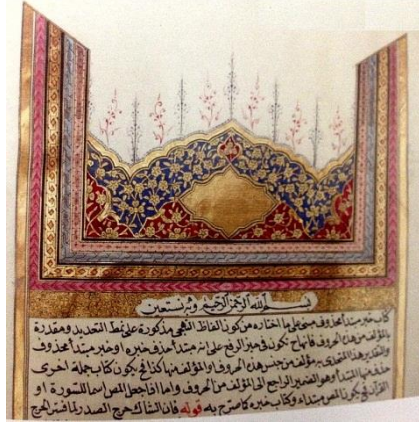 بسم الله الرحمن الرحيم وبه نستعين
كتاب خبر مبتدأ محذوف مبنى على ما اختاره من كون الفاظ التهجى مذكورة على نمط التعديد ومقدرة
بالمؤلف من هذه الحروف فانها ح تكون فى حيز الرفع على انه مبتدأ حذف خبره او خبر مبتدأ محذوف
والتقدير هذا المتحدى به مؤلف من جنس هذه الحروف او المؤلف منها كذا فيكون كتاب جملة اخرى
حذف منها المبتدأ وهو الضمير الراجع الى المؤلف من الحروف واما اذا جعل المص اسما للسورة او
القرآن فيكون المص مبتداء وكتاب خبره كما صرح به قوله فان الشاك حرج الصدر لما فسر الحرج